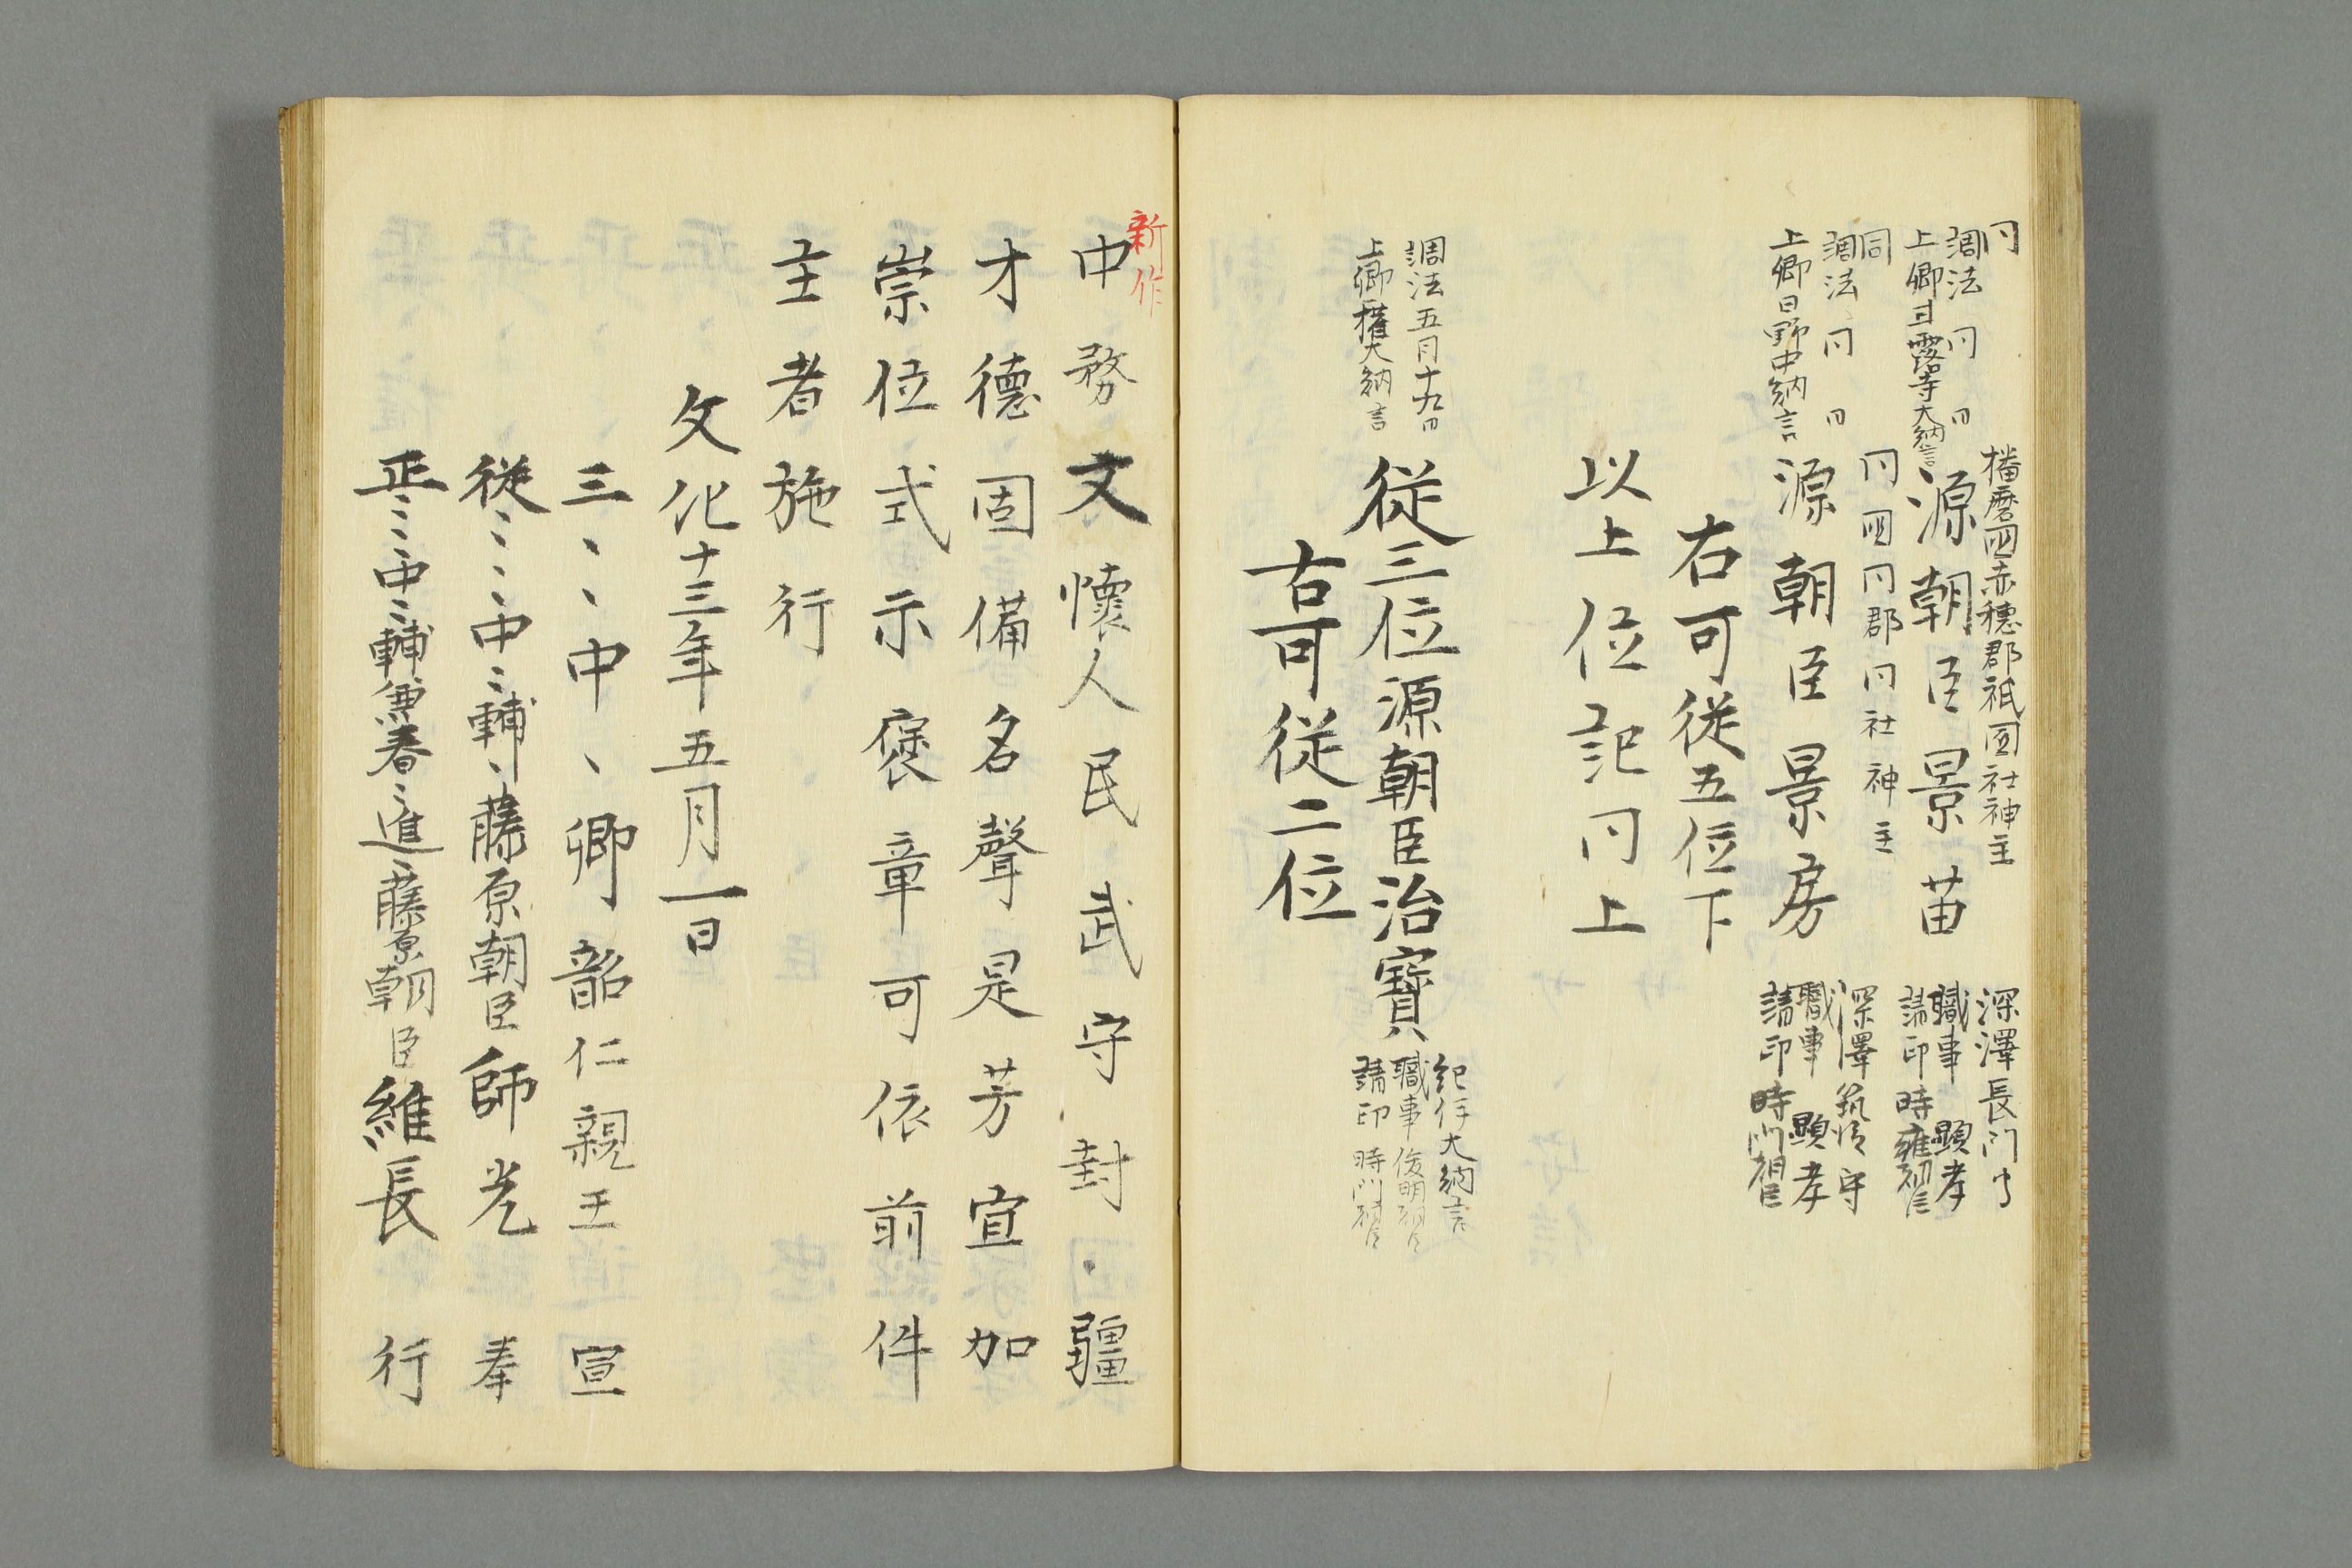 同
調法 同 日
上卿 甘露寺大納言
播磨国赤穂郡祇園社神主
源朝臣景苗
深澤長門守
職事 顕孝
請印 時雍朝臣
同
調法 同 日
上卿 日野中納言
同国同郡同社神主
源朝臣景房
深澤筑後守
職事 顕孝
請印 時門朝臣
右可従五位下
以上位記同上
調法五月十九日
上卿 権大納言
従三位源朝臣治寶
紀伊大納言
職事 俊明朝臣
請印 時門朝臣
右可従二位
新作
中務文懐人民武守封疆
才德固備名聲是芳宜加
崇位式示褒章可依前件
主者施行
文化十三年五月一日
三、、中、卿韶仁親王 宣
従、、、中、輔、藤原朝臣師光 奉
正、、中、輔兼春、進、藤原朝臣維長 行